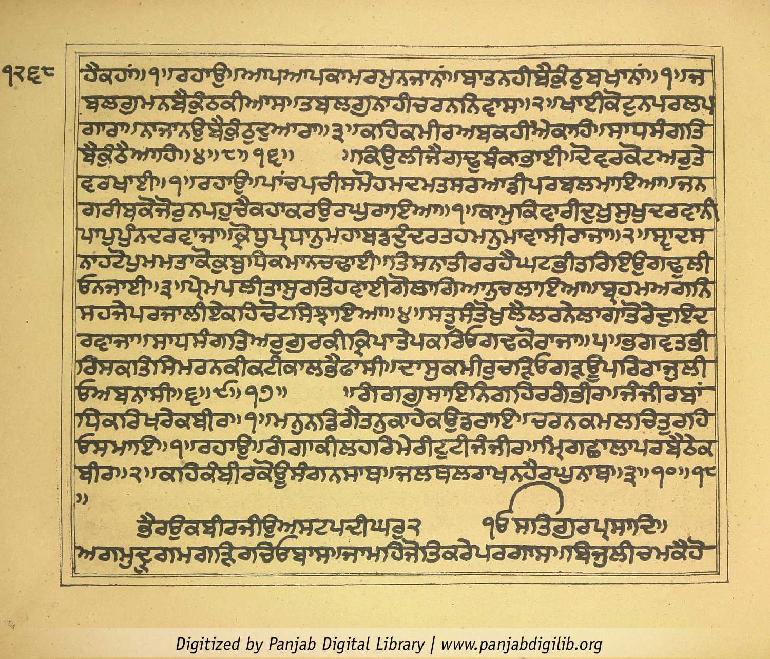 ੧੨੬੮
ਹੈਕਹਾਂ॥੧॥ਰਹਾਉ॥ਆਪਆਪਕਾਮਰਮੁਨਜਾਨਾਂ॥ਬਾਤਨਹੀਬੈਕੁੰਠੁਬਖਾਨਾਂ॥੧॥ਜ
ਬਲਗੁਮਨਬੈਕੁੰਠਕੀਆਸ॥ਤਬਲਗੁਨਾਹੀਚਰਨਨਿਵਾਸ॥੨॥ਖਾਈਕੋਟੁਨਪਰਲਪ
ਗਾਰਾ॥ਨਾਜਾਨਉਬੈਕੁੰਠਦੁਆਰਾ॥੩॥ਕਹਿਕਮੀਰਅਬਕਹੀਐਕਾਹਿ॥ਸਾਧਸੰਗਤਿ
ਬੈਕੁੰਠੈਆਹੀ॥੪॥੮॥੧੬॥ ॥ਕਿਉਲੀਜੈਗਢੁਬੰਕਾਭਾਈ॥ਦੋਵਰਕੋਟਅਰੁਤੇ
ਵਰਖਾਈ॥੧॥ਰਹਾਉ॥ਪਾਂਚਪਚੀਸਮੋਹਮਦਮਤਸਰਆਡੀਪਰਬਲਮਾਇਆ॥ਜਨ
ਗਰੀਬਕੋਜੋਰੁਨਪਹੁਚੈਕਹਾਕਰਉਰਘੁਰਾਇਆ॥੧॥ਕਾਮੁਕਿਵਾਰੀਦੁਖੁਸੁਖੁਦਰਵਾਨੀ
ਪਾਪੁਪੁੰਨਦਰਵਾਜਾ॥ਕ੍ਰੋਧੁਪ੍ਰਧਾਨੁਮਹਾਬਡਦੁੰਦਰਤਹਮਨੁਮਾਵਾਸੀਰਾਜਾ॥੨॥ਸ੍ਵਾਦਸ
ਨਾਹਟੋਪੁਮਮਤਾਕੋਕੁਬੁਧਿਕਮਾਨਚਢਾਈ॥ਤਿਸਨਾਤੀਰਰਹੇਘਟਭੀਤਰਿਇਉਗਢੁਲੀ
ਓਨਜਾਈ॥੩॥ਪ੍ਰੇਮਪਲੀਤਾਸੁਰਤਿਹਵਾਈਗੋਲਾਗਿਆਨੁਚਲਾਇਆ॥ਬ੍ਰਹਮਅਗਨਿ
ਸਹਜੇਪਰਜਾਲੀਏਕਹਿਚੋਟਸਿਝਾਇਆ॥੪॥ਸਤੁਸੰਤੋਖੁਲੈਲਰਨੇਲਾਗਾਤੋਰੇਦੁਇਦ
ਰਵਾਜਾ॥ਸਾਧਸੰਗਤਿਅਰੁਗੁਰਕੀਕ੍ਰਿਪਾਤੇਪਕਰਿਓਗਢਕੋਰਾਜਾ॥੫॥ਭਗਵਤਭੀ
ਰਿਸਕਤਿਸਿਮਰਨਕੀਕਟੀਕਾਲਭੈਫਾਸੀ॥ਦਾਸੁਕਮੀਰੁਚੜ੍ਹਿਓਗੜ੍ਹਊਪਰਿਰਾਜੁਲੀ
ਓਅਬਨਾਸੀ॥੬॥੯॥੧੭॥ ॥ਗੰਗਗੁਸਾਇਨਿਗਹਿਰਗੰਭੀਰ॥ਜੰਜੀਰਬਾਂ
ਧਿਕਰਿਖਰੇਕਬੀਰ॥੧॥ਮਨੁਨਡਿਗੈਤਨੁਕਾਹੇਕਉਡਰਾਇ॥ਚਰਨਕਮਲਚਿਤੁਰਹਿ
ਓਸਮਾਇ॥੧॥ਰਹਾਉ॥ਗੰਗਾਕੀਲਹਰਿਮੇਰੀਟੁਟੀਜੰਜੀਰ॥ਮ੍ਰਿਗਛਾਲਾਪਰਬੈਠੇਕ
ਬੀਰ॥੨॥ਕਹਿਕੰਬੀਰਕੋਊਸੰਗਨਸਾਥ॥ਜਲਥਲਰਾਖਨਹੈਰਘੁਨਾਥ॥੩॥੧੦॥੧੮
॥
ਭੈਰਉਕਬੀਰਜੀਉਅਸਟਪਦੀਘਰੁ੨ ੴਸਤਿਗੁਰਪ੍ਰਸਾਦਿ॥
ਅਗਮੁਦ੍ਰੁਗਮਗੜਿਰਚਿਓਬਾਸ॥ਜਾਮਹਿਜੋਤਿਕਰੇਪਰਗਾਸ॥ਬਿਜੁਲੀਚਮਕੈਹੋ
Digitized by Panjab Digital Library | www.panjabdigilib.org